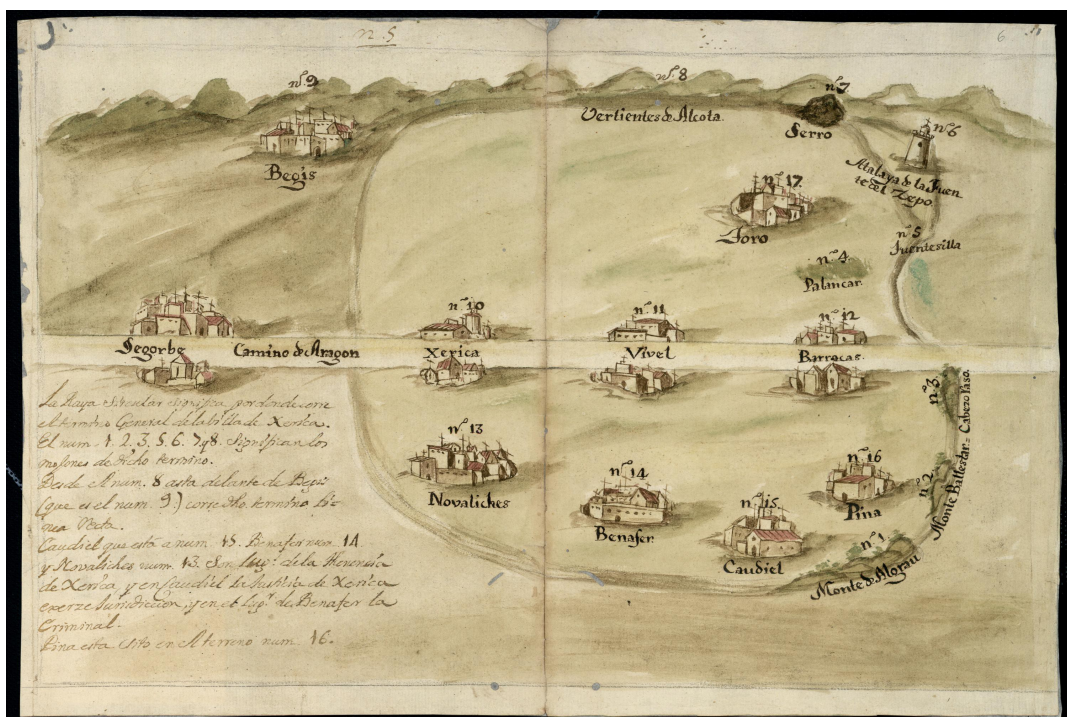 n. 5
6
nº. 9
Begis
nº. 8
Vertientes de Alcota.
nº 7
Serro
nº 6
Atalaya de la Fuen
te del Zepo.
nº. 17.
Toro
nº 5
Fuentesilla
nº. 4.
Palancar.
Segorbe
Camino de Aragon
nº. 10
Xerica
nº. 11
Vivel
nº. 12
Barracas.
nº. 3.
Cabezo Raso.
nº. 2.
Monte Ballestar.=
nº. 1
Monte de Algrau
nº. 13
Novaliches
nº. 14
Benafer.
nº. 15.
Caudiel
nº. 16
Pina
La Raya Sircular significa por donde corre
el termino General de la billa de Xerica.
El num. 1. 2. 3. 5. 6. 7. y 8. Significan los
mojones de dicho termino.
Desde el num. 8 asta delante de Begis
(que es el num. 9.) corre dho. termino Li=
nea Recta.
Caudiel que está a num. 15. Benafer num. 14
y Novaliches num. 13. Son Lugs. de la Thenencia
de Xerica, y en Caudiel la Justicia de Xerica
exerze Jurisdiccion, y en el Lugr. de Benafer la
Criminal.
Pina esta sito en el terreno num. 16.